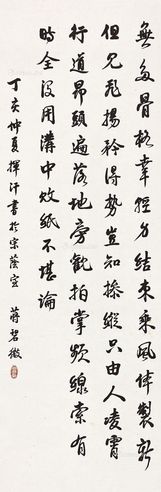 無多骨格結束乘風体製新
但見飛揚矜得勢豈知操縱只由人凌霄
行道昂頭遍落地旁觀拍掌頻線索有
時全沒用溝中敗紙不堪論
丁亥仲夏揮汗書於宗蔭室 蔣碧微